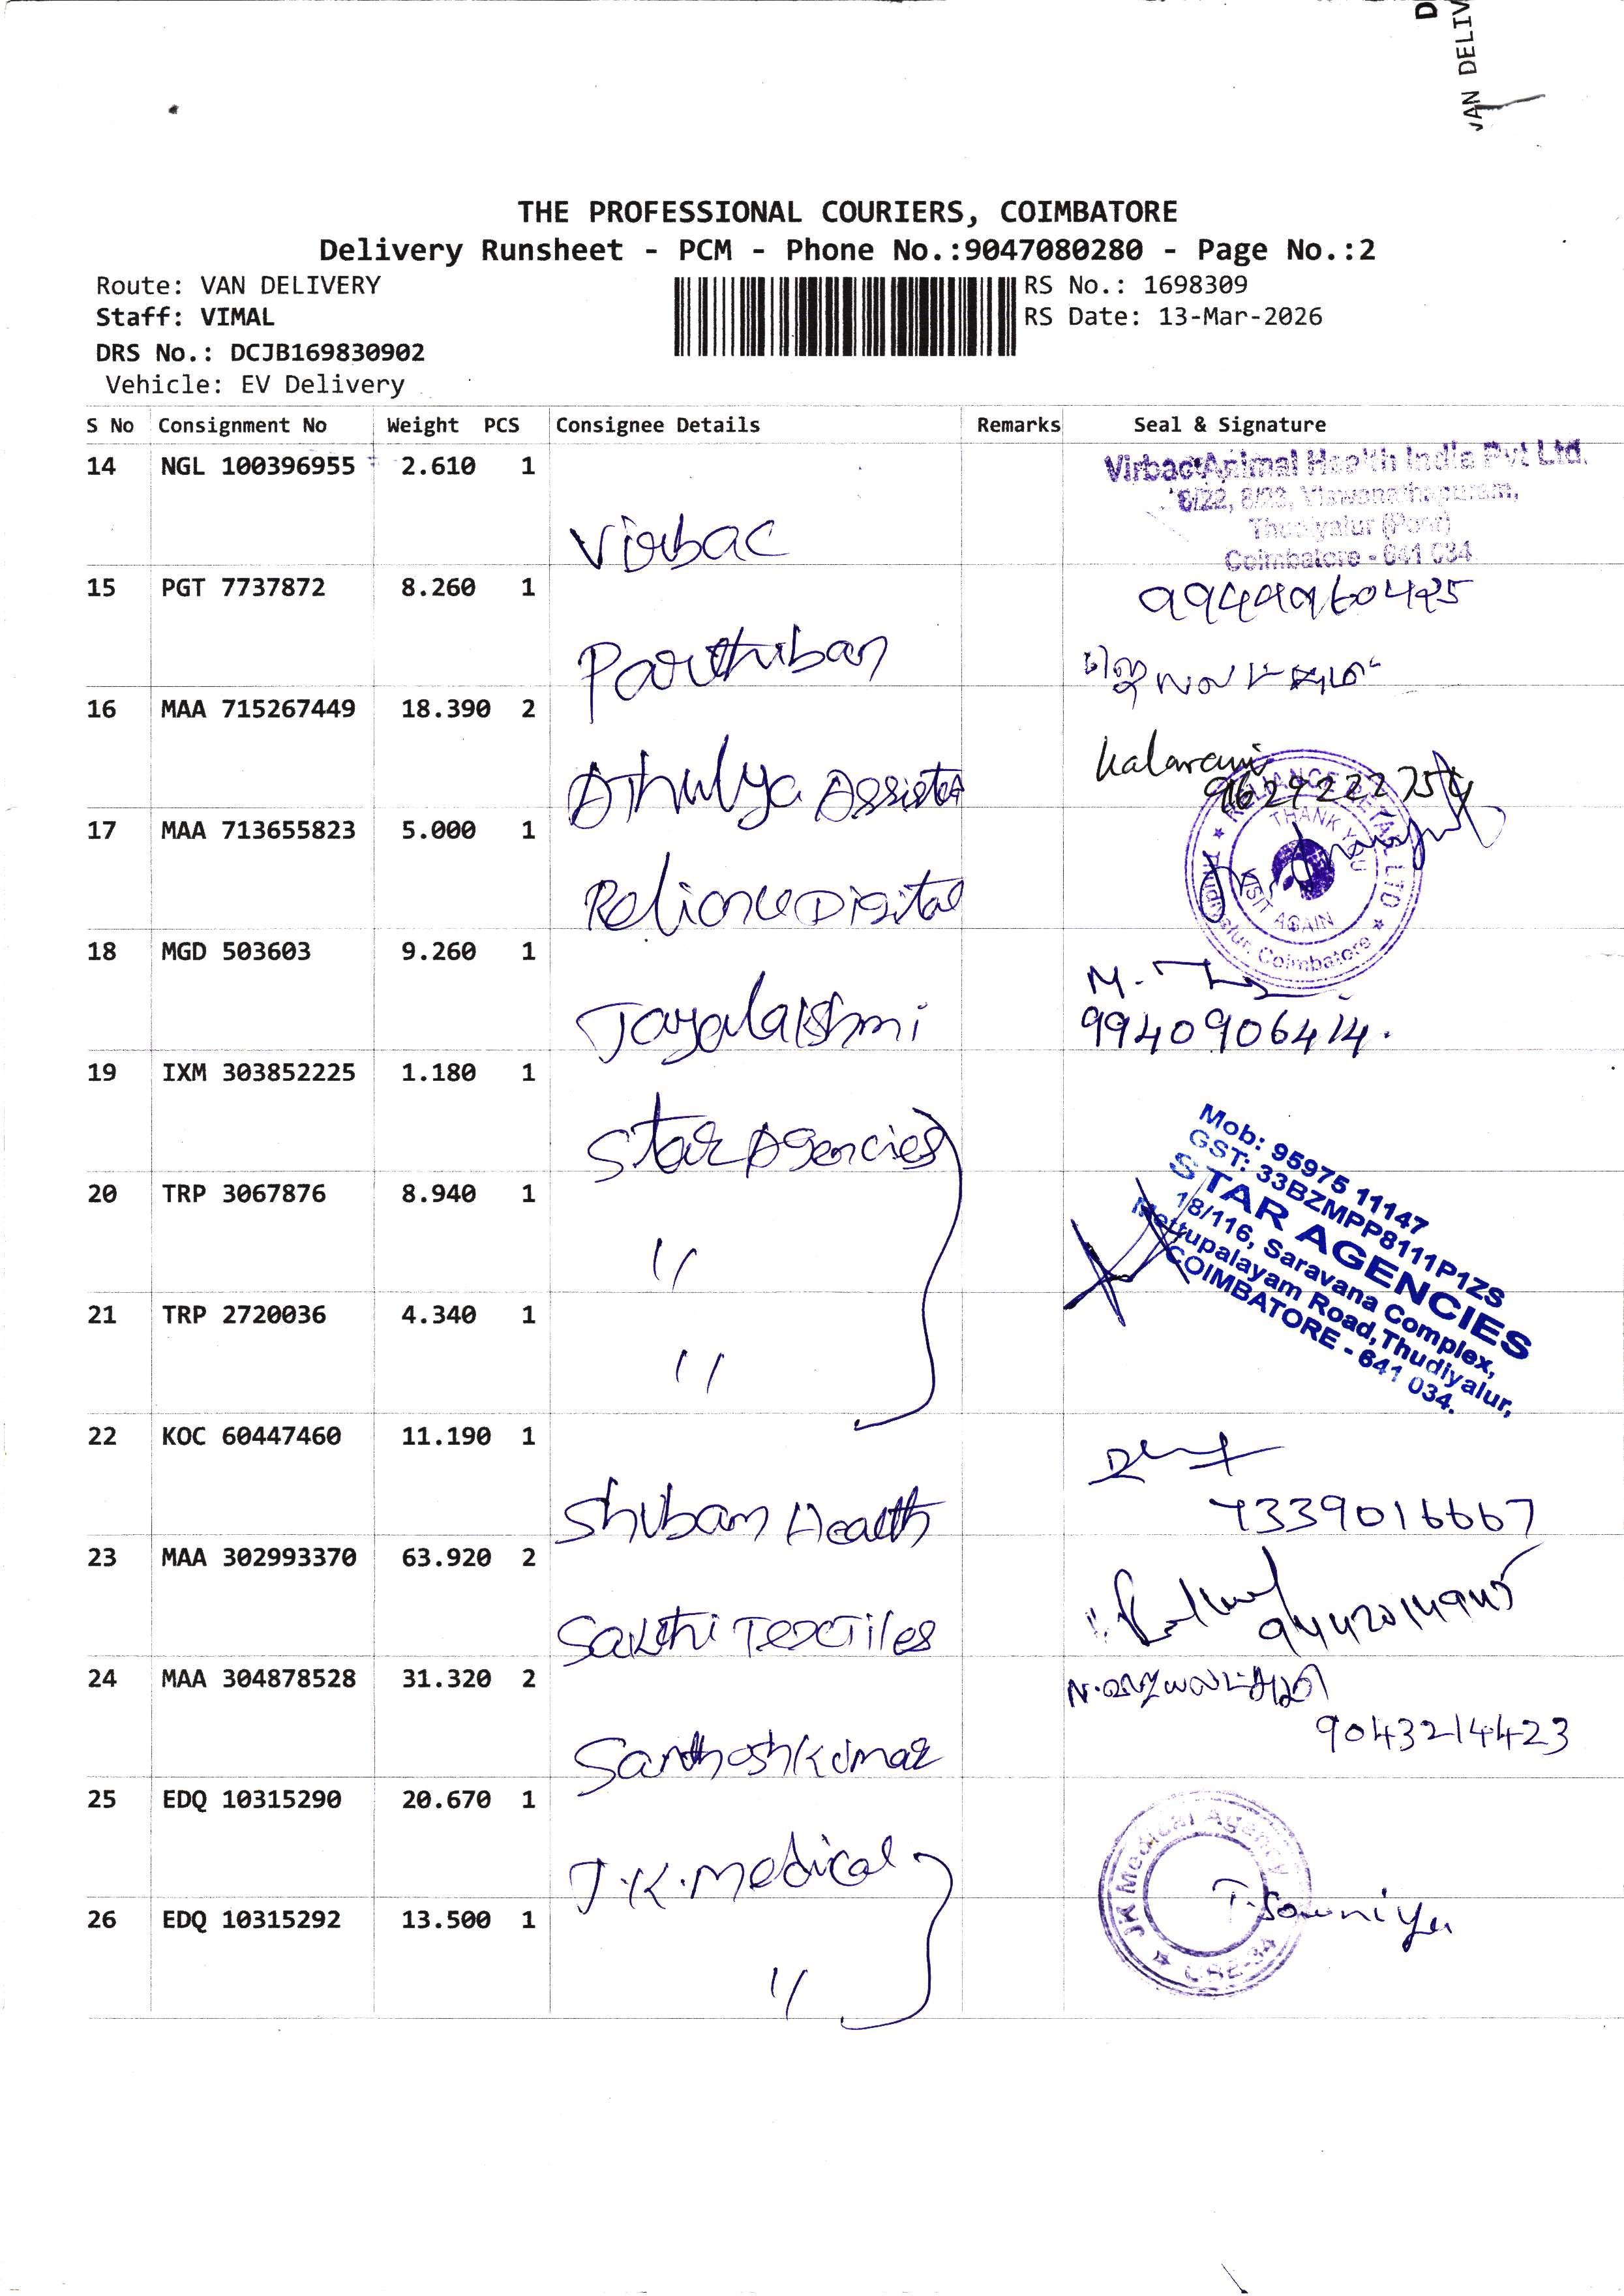 D
VAN DELIV
THE PROFESSIONAL COURIERS, COIMBATORE
Delivery Runsheet - PCM - Phone No.:9047080280 - Page No.:2
Route: VAN DELIVERY
RS No.: 1698309
Staff: VIMAL
RS Date: 13-Mar-2026
DRS No.: DCJB169830902
Vehicle: EV Delivery
S No Consignment No Weight PCS Consignee Details Remarks Seal & Signature
14 NGL 100396955 2.610 1
Virbac
Virbac Animal Health India Pvt Ltd.
6/22, 6/23, Viswanathapuram,
Thudiyalur (Post)
Coimbatore - 641 034
15 PGT 7737872 8.260 1
Parthiban
16 MAA 715267449 18.390 2
Athulya Assisted
Kalarani
9629222754
17 MAA 713655823 5.000 1
Reliance Digital
RELIANCE RETAIL LTD
THANK YOU
VISIT AGAIN
Thudiyalur, Coimbatore
18 MGD 503603 9.260 1
Jayalakshmi
9940906414.
19 IXM 303852225 1.180 1
Star Agencies
Mob: 95975 11147
GST: 33BZMPP8111P1ZS
STAR AGENCIES
18/116, Saravana Complex,
Mettupalayam Road, Thudiyalur,
COIMBATORE - 641 034.
20 TRP 3067876 8.940 1
"
21 TRP 2720036 4.340 1
"
22 KOC 60447460 11.190 1
Shuban Health
7339016667
23 MAA 302993370 63.920 2
Sakthi Textiles
9442014945
24 MAA 304878528 31.320 2
Santhosh Kumar
9043214423
25 EDQ 10315290 20.670 1
J.K. Medical
JK Medical Agency
CBE-34
T. Sowmiya
26 EDQ 10315292 13.500 1
"